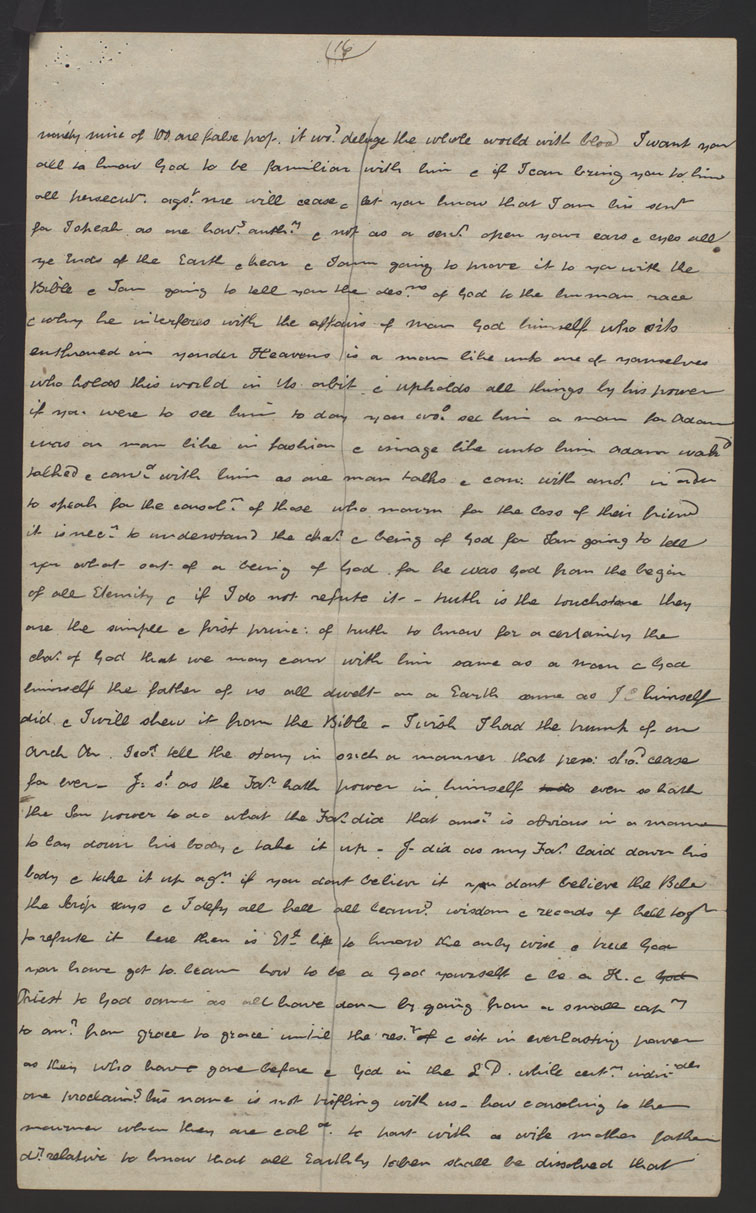 (16)
ninety nine of 100. are false prop. it wod. deluge the whole world with blood I want you
all to know God to be familiar with him & if I can bring you to him
all persecut. agst. me will cease & let you know that I am his servt
for I speak as one havg. authy. & not as a serv. open your ears & eyes all
ye Ends of the Earth & hear & I am going to prove it to you with the
Bible & I am going to tell you the des.ns of God to the human race
& why he interferes with the affairs of man God himself who sits
enthroned in yonder Heavens is a man like unto one of yourselves
who holds this world in its orbit & upholds all things by his power
if you were to see him to day you wod. see him a man for Adam
was a man like in fashion & image like unto him Adam walkd
talked & convd. with him as one man talks & com: with anor. in order
to speak for the consoln. of those who mourn for the loss of their friend
it is necy. to understand the char. & being of God for I am going to tell
you what sort of a being of God. for he was God from the begin
of all Eternity & if I do not refute it - truth is the touchstone they
are the simple & first princ: of truth to know for a certainty the
char. of God that we may conv with him same as a man & God
himself the father of us all dwelt on a Earth same as J C himself
did & I will shew it from the Bible - I wish I had the trump of an
Arch An. I cod. tell the story in such a manner that pers: shod. cease
for ever - J. sd. as the Far. hath power in himself even so hath
the Son power to do what the Far. did that ansr. is obvious in a manner
to lay down his body & take it up - J. did as my Far. laid down his
body & take it up agn. if you dont believe it you dont believe the Bible
the Scrip says & I defy all hell all learng. wisdom & records of hell togr
to refute it here then is Etl. life to know the only wise & true God
you have got to learn how to be a God yourself & be a K. & God
Priest to God same as all have done by going from a small capy
to anr. from grace to grace until the resn. of & sit in everlasting power
as they who have gone before & God in the L D. while certn. individals
are proclaimg. his name is not trifling with us - how consoling to the
mourner when they are cald. to part with a wife mother father
dr. relative to know that all Earthly taber shall be dissolved that